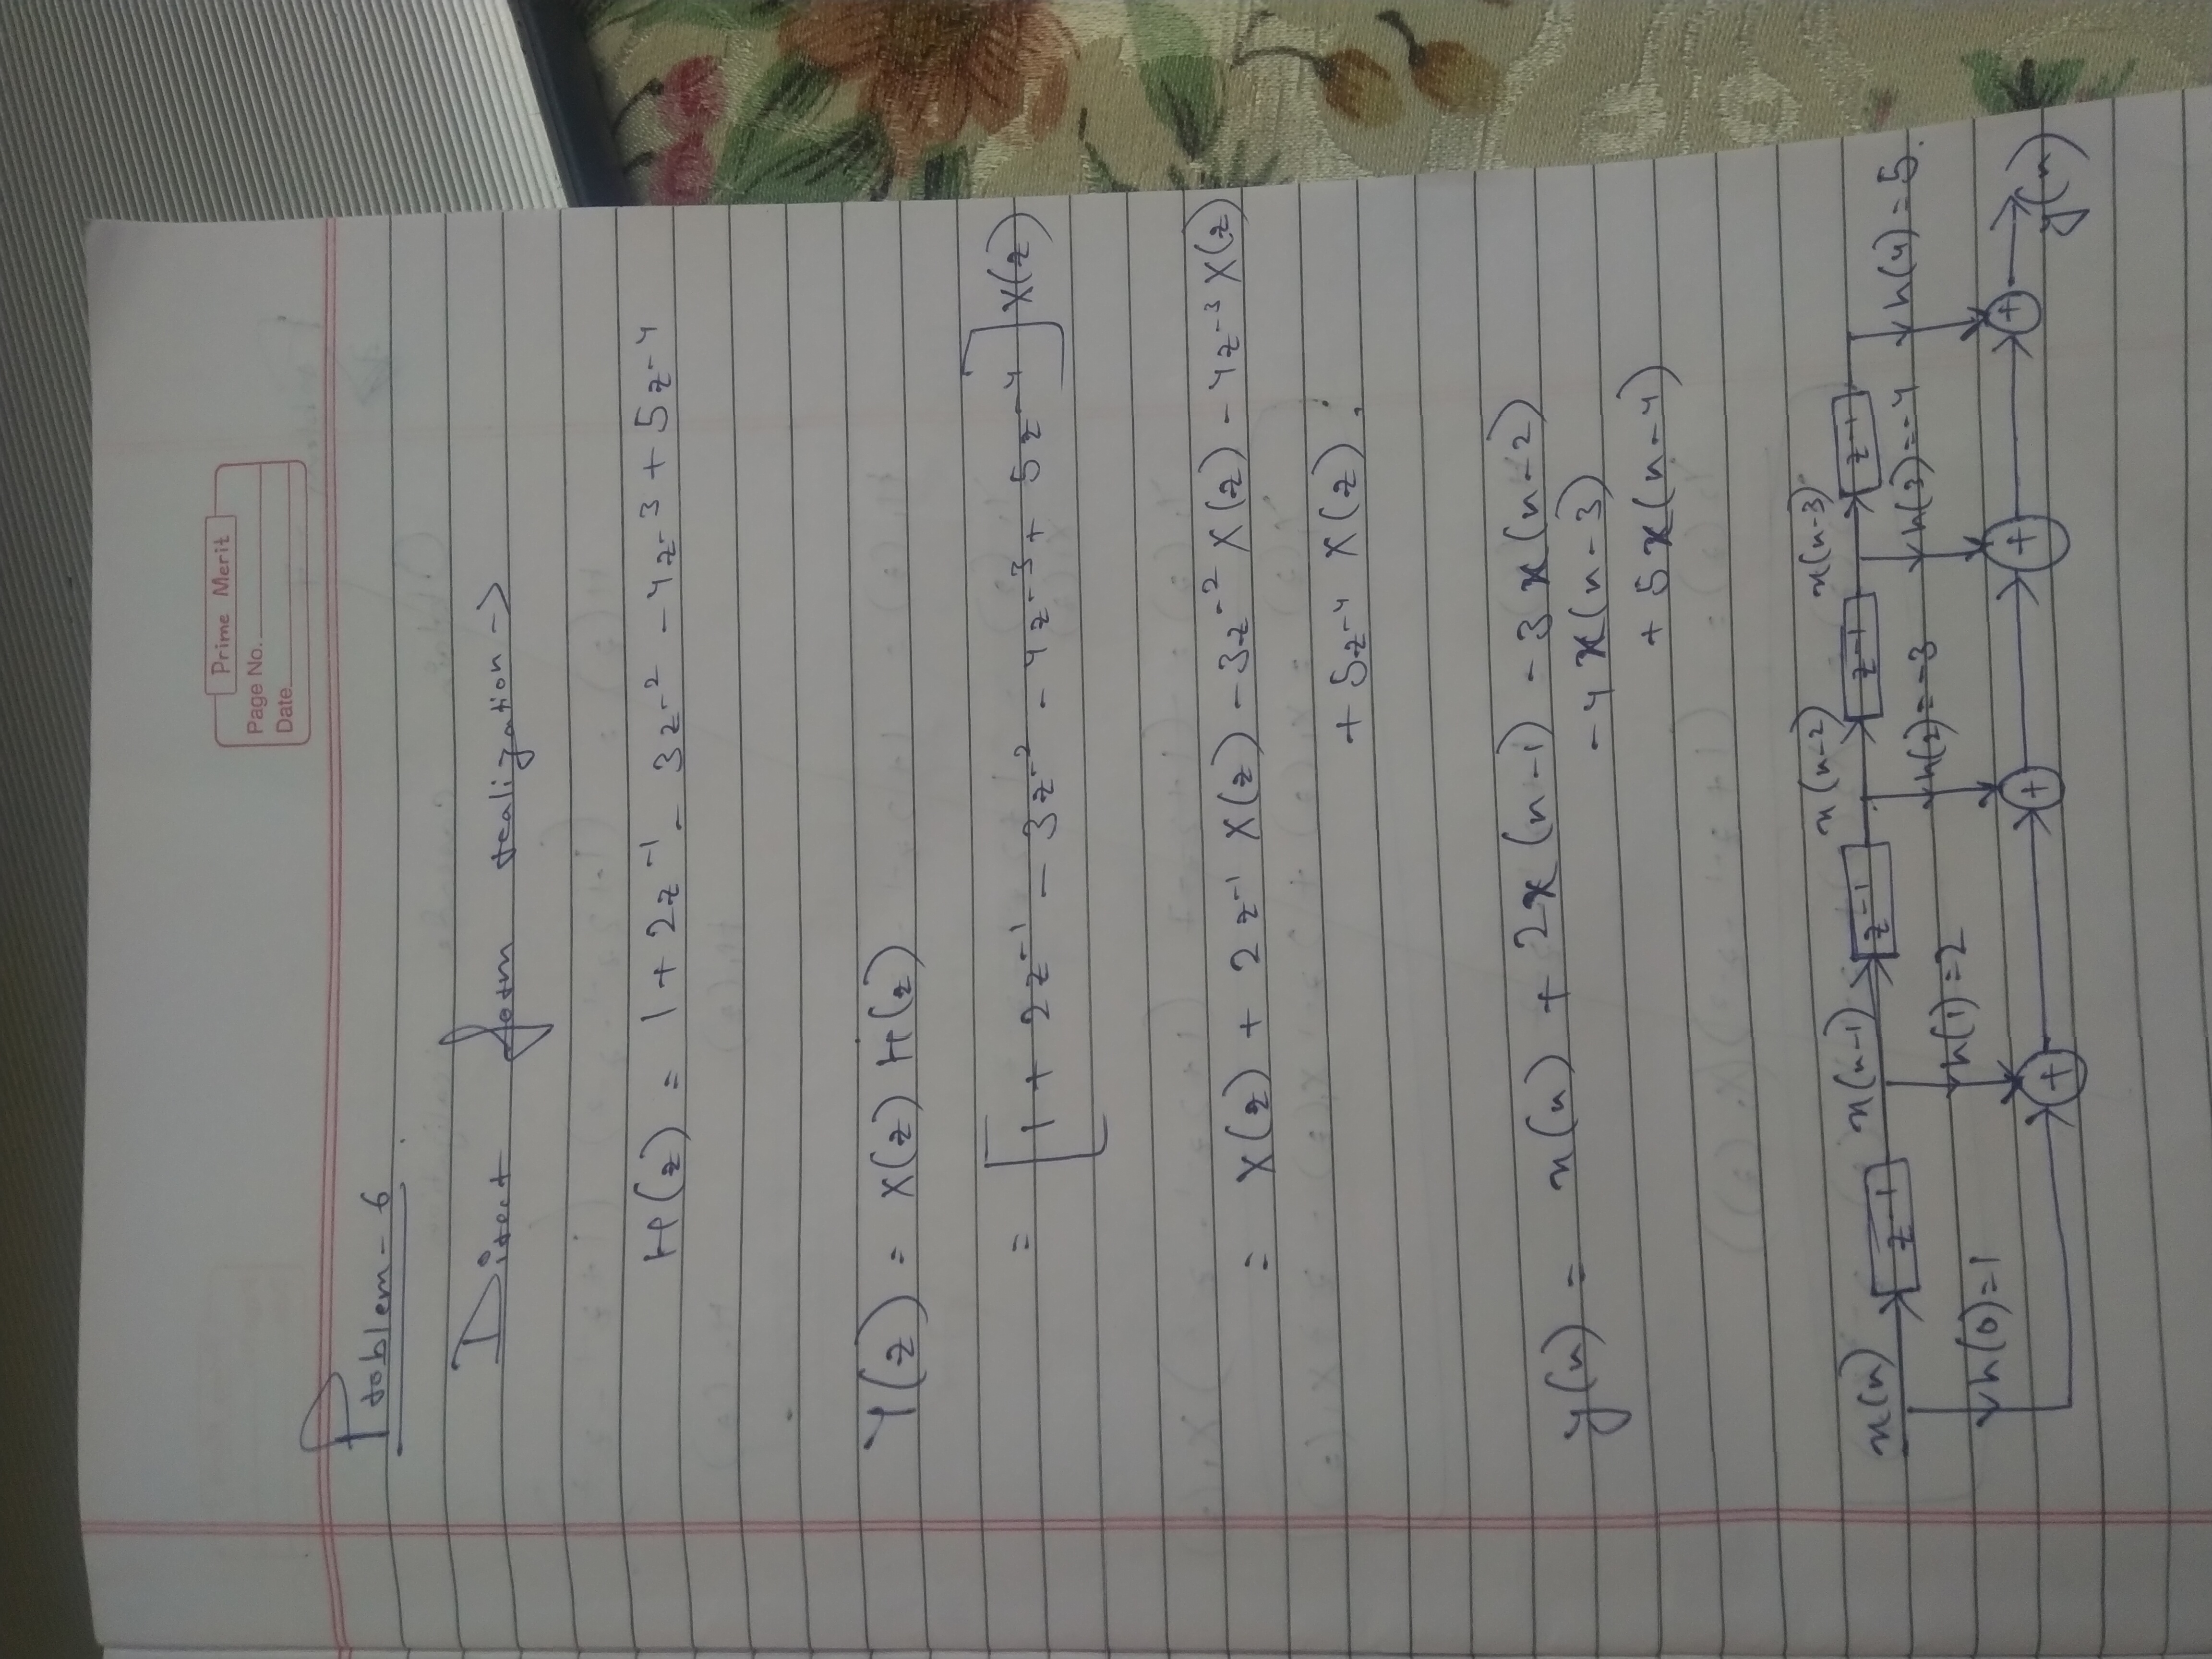 Prime Merit
Page No.
Date
Problem-6
Direct form realization →
H(z) = 1 + 2z⁻¹ - 3z⁻² - 4z⁻³ + 5z⁻⁴
Y(z) = X(z) H(z)
= [1 + 2z⁻¹ - 3z⁻² - 4z⁻³ + 5z⁻⁴] X(z)
= X(z) + 2z⁻¹ X(z) - 3z⁻² X(z) - 4z⁻³ X(z)
+ 5z⁻⁴ X(z).
y(n) = x(n) + 2x(n-1) - 3x(n-2)
- 4x(n-3)
+ 5x(n-4)
x(n) z-1 x(n-1) z-1 x(n-2) z-1 x(n-3) z-1
h(0)=1 h(1)=2 h(2)=-3 h(3)=-4 h(4)=5
+ + + + y(n)